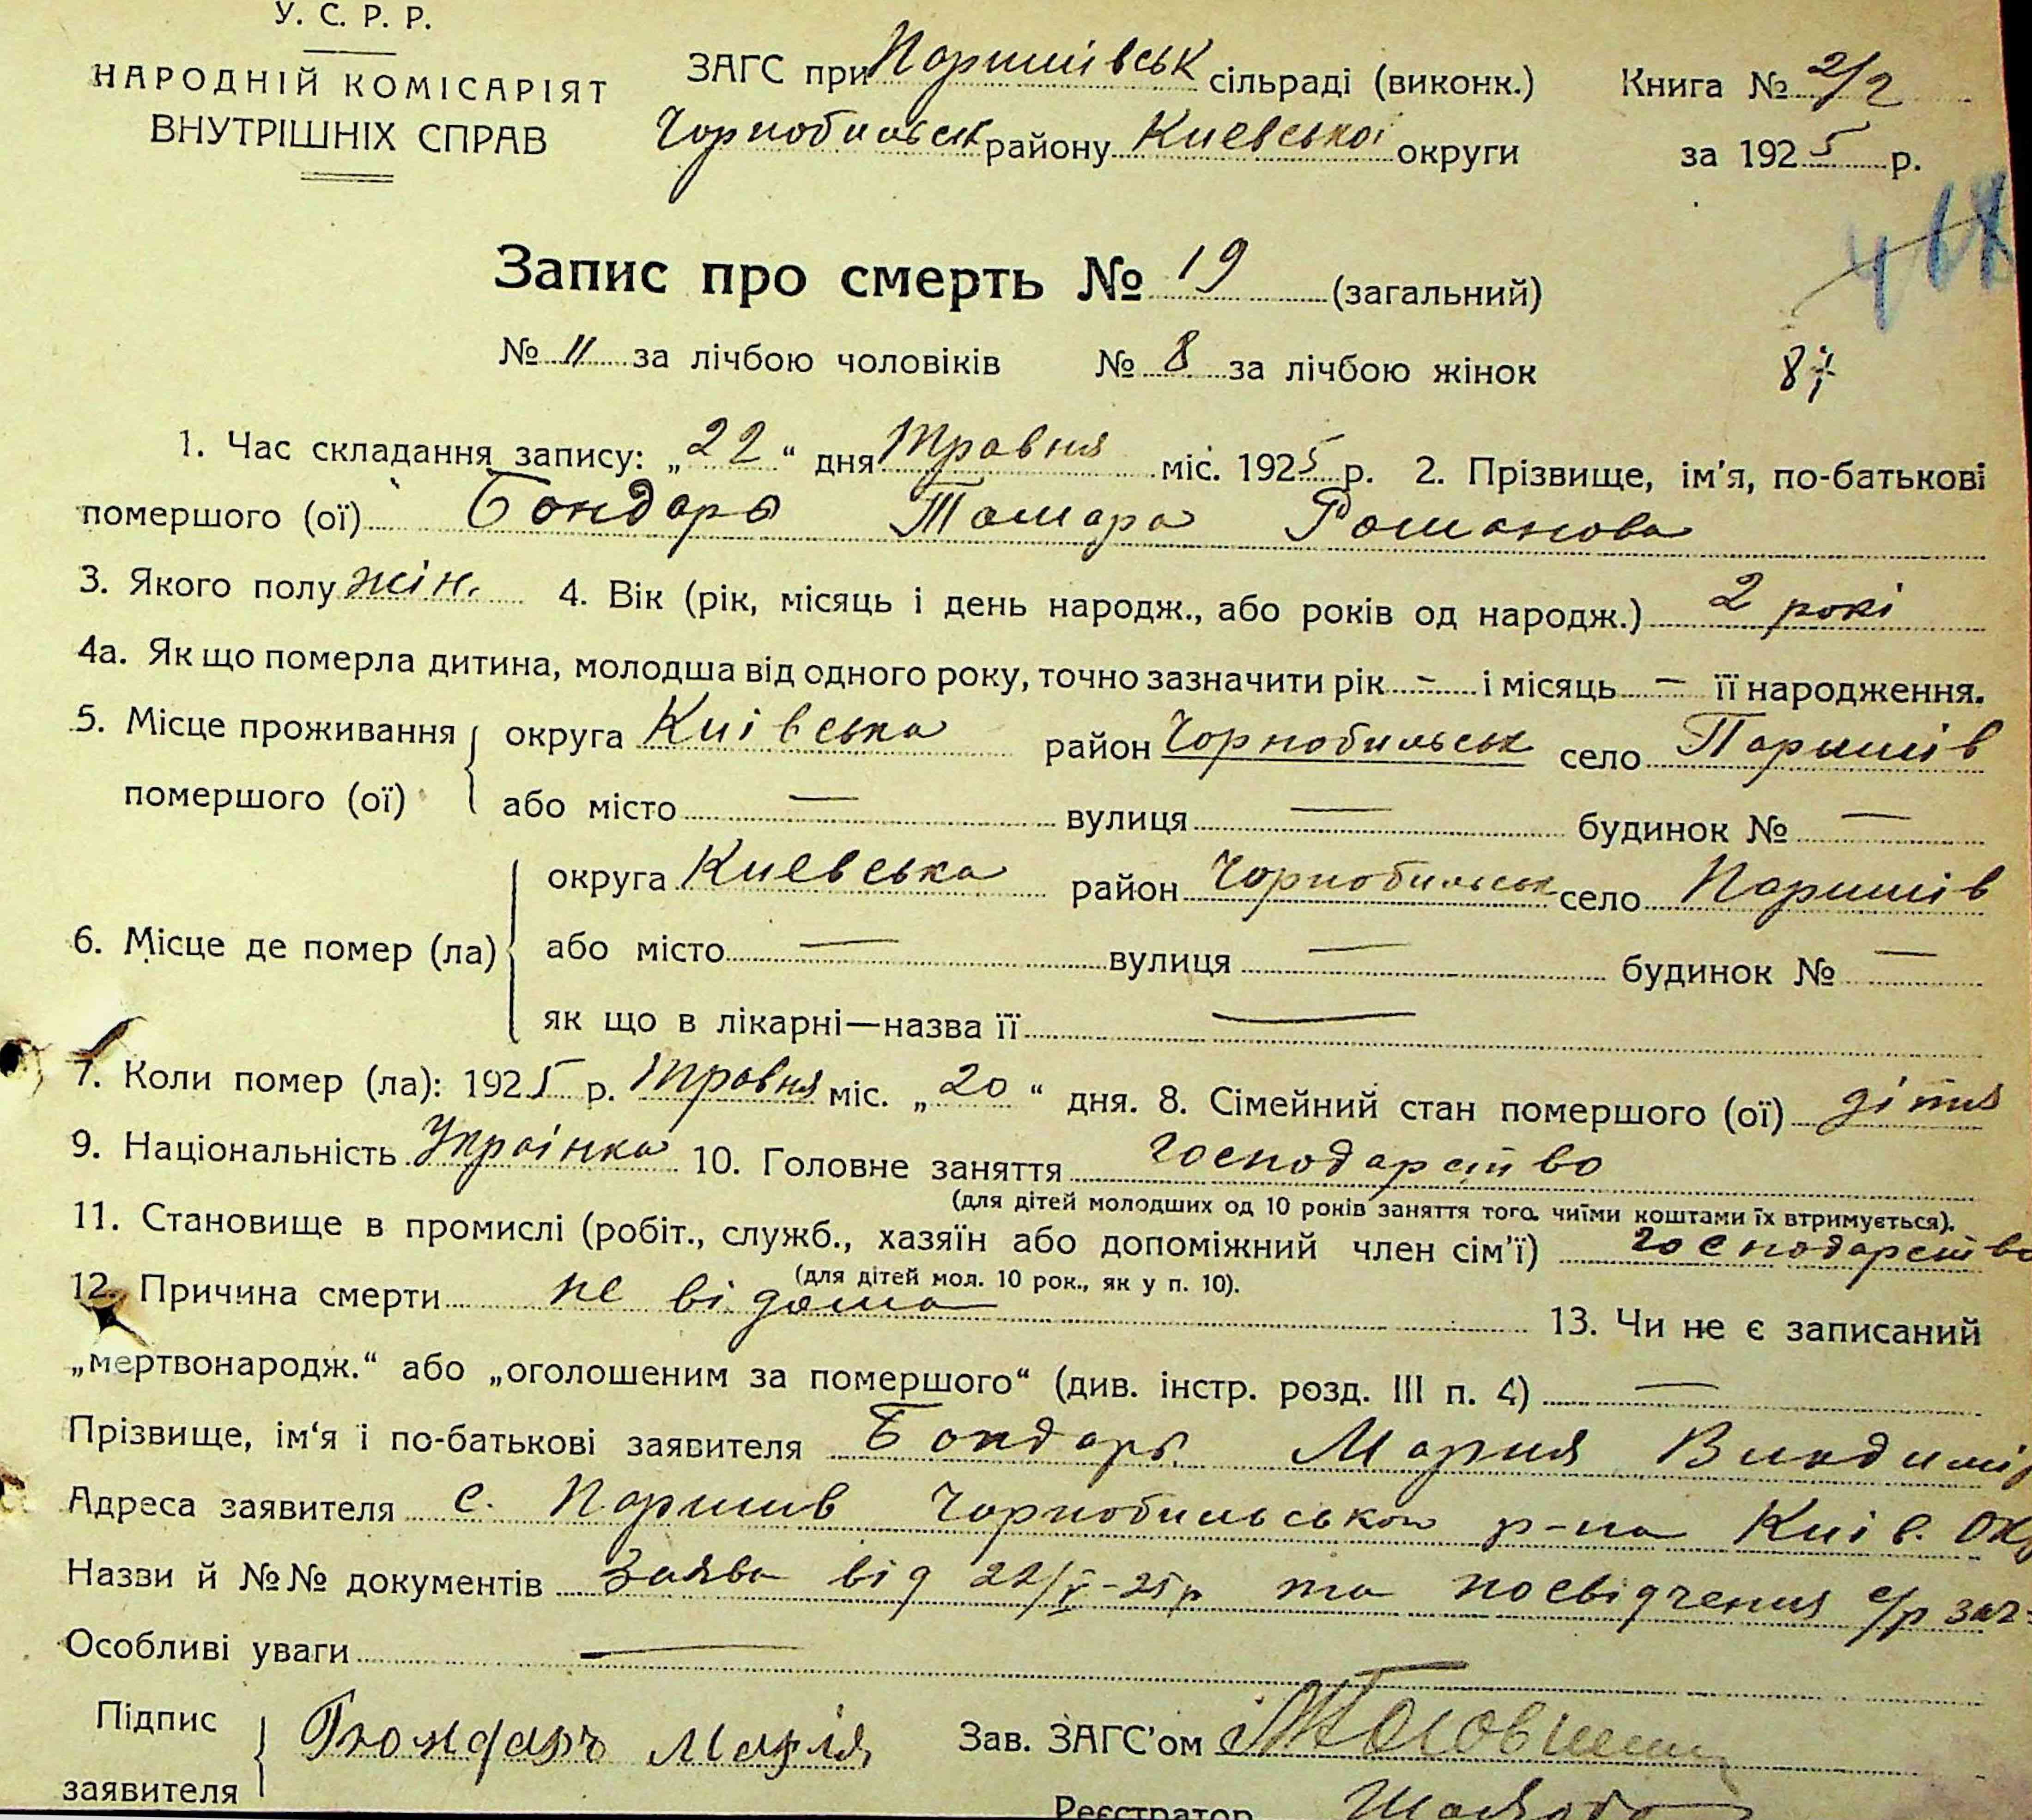 У. С. Р. Р.
НАРОДНІЙ КОМІСАРІЯТ
ВНУТРІШНІХ СПРАВ
ЗАГС при Паришівськ сільраді (виконк.)
Чорнобильськ району Киевськоі округи
Книга № 2/2
за 1925 р.
468
Запис про смерть № 19 (загальний)
№ 11 за лічбою чоловіків № 8 за лічбою жінок
87
1. Час складання запису: „22“ дня Травня міс. 1925 р. 2. Прізвище, ім'я, по-батькові
помершого (ої) Бондарь Тамара Романова
3. Якого полу жін. 4. Вік (рік, місяць і день народж., або років од народж.) 2 рокі
4а. Як що померла дитина, молодша від одного року, точно зазначити рік – і місяць – її народження.
5. Місце проживання округа Киівська район Чорнобильськ село Паришів
помершого (ої) або місто — вулиця — будинок № —
округа Киевська район Чорнобильськ село Паришів
6. Місце де помер (ла) або місто — вулиця — будинок № —
як що в лікарні—назва її —
7. Коли помер (ла): 1925 р. Травня міс. „20“ дня. 8. Сімейний стан помершого (ої) дітя
9. Національність Украінка 10. Головне заняття господарство
(для дітей молодших од 10 років заняття того, чиїми коштами їх втримується).
11. Становище в промислі (робіт., служб., хазяїн або допоміжний член сім'ї) господарство
(для дітей мол. 10 рок., як у п. 10).
12. Причина смерти не відома 13. Чи не є записаний
„мертвонародж.“ або „оголошеним за помершого“ (див. інстр. розд. III п. 4) —
Прізвище, ім'я і по-батькові заявителя Бондарь Мария
Адреса заявителя с. Паришів Чорнобильськом р-на Киів. Окр
Назви й №№ документів Заява від 22/V-25р та посвідчення с/р за №
Особливі уваги —
Підпис
заявителя Бондарь Марія
Зав. ЗАГС'ом
Реєстратор